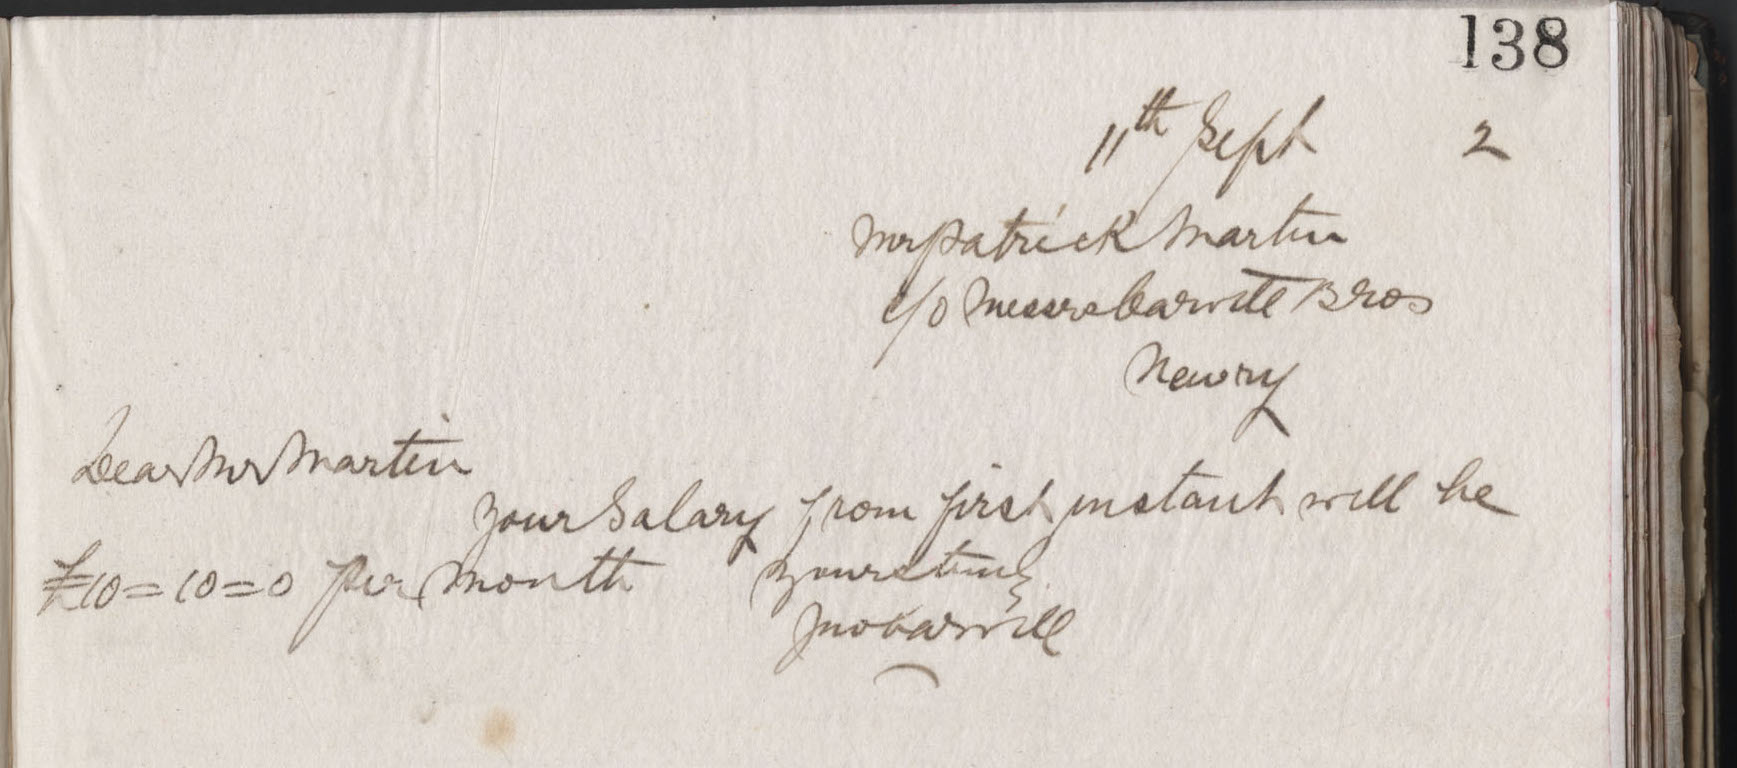 138
11th Sept 2
Mr Patrick Martin
c/o Messrs Carvill Bros
Newry
Dear Mr Martin
Your Salary from first instant will be
£10=10=0 per month Yours truly
Jno Carvill